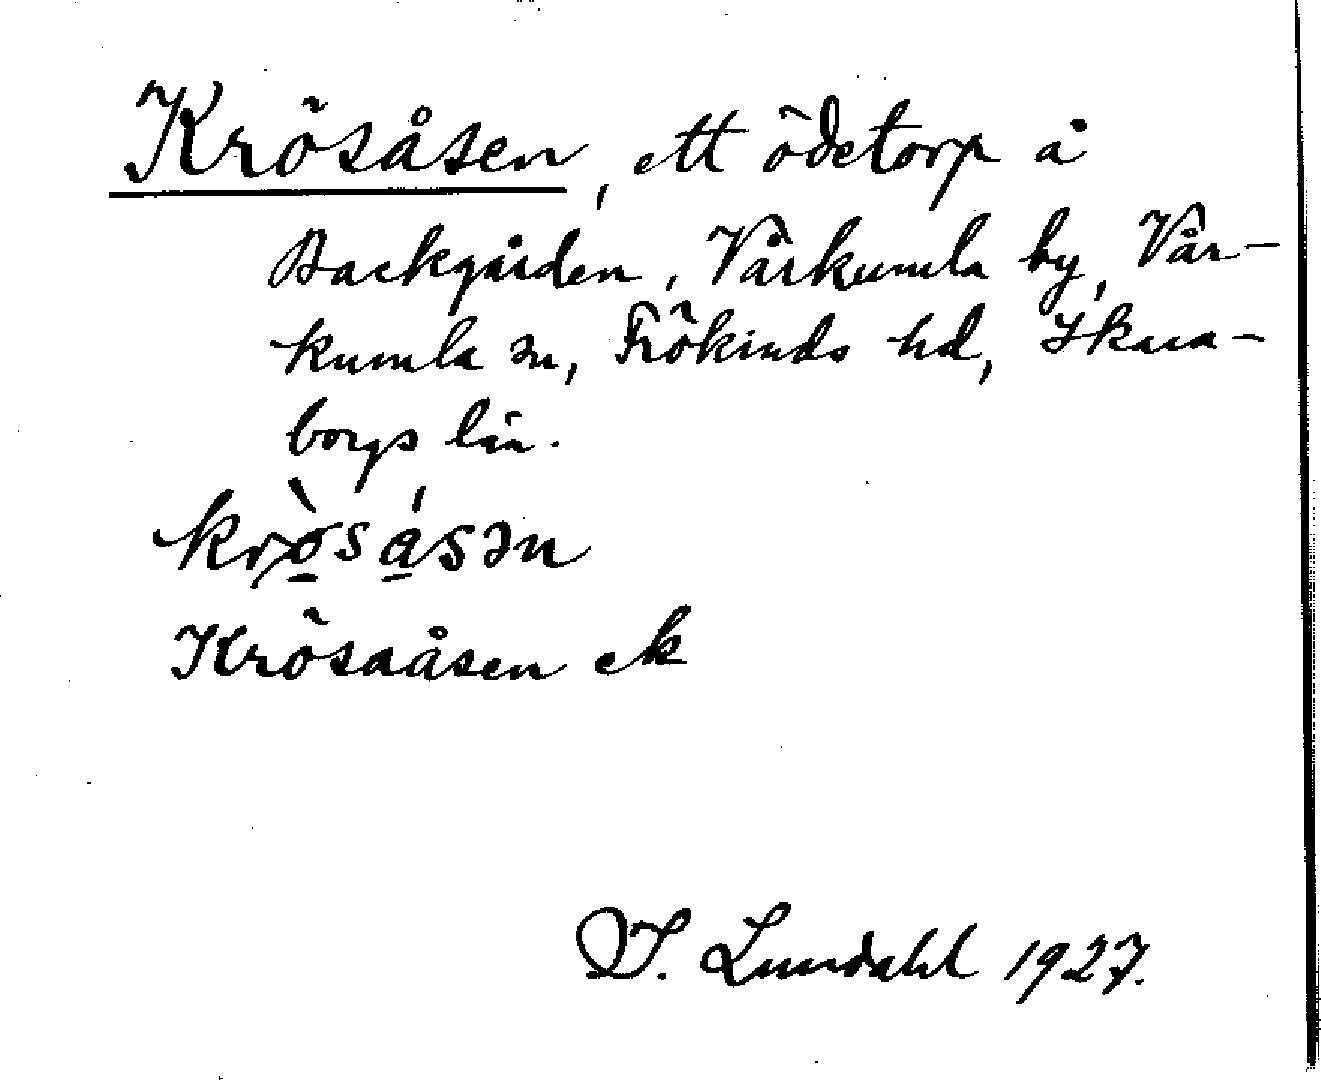 Krösåsen, ett ödetorp å
Backgården, Vårkumla by, Vår-
kumla sn, Frökinds hd, Skara-
borgs län.
krò̱sá̱sən
Krösaåsen ek
I. Lundahl 1927.